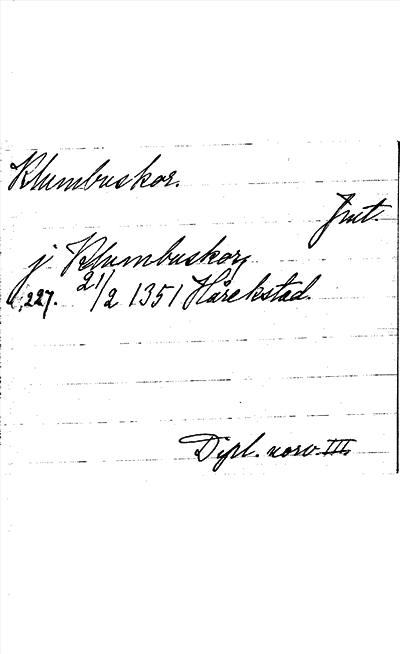 Klumbuskor.
Jmt.
j Klumbuskor,
227. 21/2 1351 Hårekstad.
Dipl. norv. III